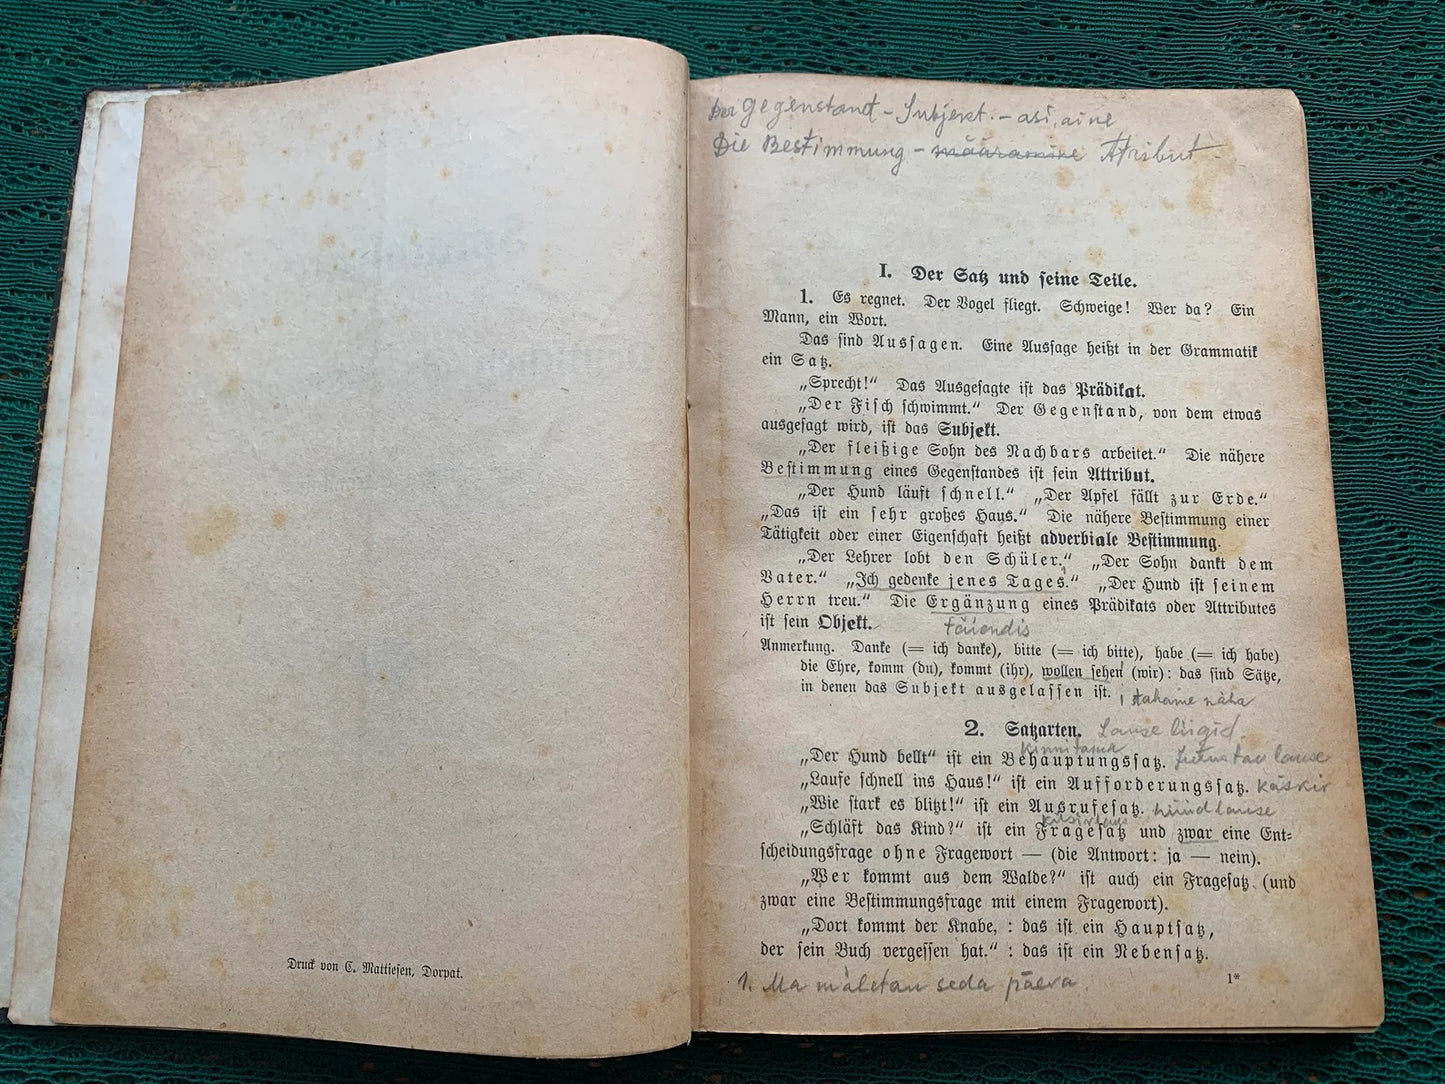 Druck von C. Mattiesen, Dorpat.
Der Gegenstand - Subjekt. - asi, aine
Die Bestimmung - määramine Atribut
I. Der Satz und seine Teile.
1. Es regnet. Der Vogel fliegt. Schweige! Wer da? Ein
Mann, ein Wort.
Das sind Aussagen. Eine Aussage heißt in der Grammatik
ein Satz.
„Sprecht!“ Das Ausgesagte ist das Prädikat.
„Der Fisch schwimmt.“ Der Gegenstand, von dem etwas
ausgesagt wird, ist das Subjekt.
„Der fleißige Sohn des Nachbars arbeitet.“ Die nähere
Bestimmung eines Gegenstandes ist sein Attribut.
„Der Hund läuft schnell.“ „Der Apfel fällt zur Erde.“
„Das ist ein sehr großes Haus.“ Die nähere Bestimmung einer
Tätigkeit oder einer Eigenschaft heißt adverbiale Bestimmung.
„Der Lehrer lobt den Schüler.“ „Der Sohn dankt dem
Vater.“ „Ich gedenke jenes Tages.“ „Der Hund ist seinem
Herrn treu.“ Die Ergänzung eines Prädikats oder Attributes
ist sein Objekt. täiendis
Anmerkung. Danke (= ich danke), bitte (= ich bitte), habe (= ich habe)
die Ehre, komm (du), kommt (ihr), wollen sehen (wir): das sind Sätze,
in denen das Subjekt ausgelassen ist. tahame näha
2. Satzarten. Lause liigid.
„Der Hund bellt“ ist ein Behauptungssatz. lause
„Laufe schnell ins Haus!“ ist ein Aufforderungssatz. käskiv
„Wie stark es blitzt!“ ist ein Ausrufesatz. hüüdlause
„Schläft das Kind?“ ist ein Fragesatz und zwar eine Ent-
scheidungsfrage ohne Fragewort — (die Antwort: ja — nein).
„Wer kommt aus dem Walde?“ ist auch ein Fragesatz (und
zwar eine Bestimmungsfrage mit einem Fragewort).
„Dort kommt der Knabe, : das ist ein Hauptsatz,
der sein Buch vergessen hat.“ : das ist ein Nebensatz.
1. Ma mäletan seda päeva.
1*